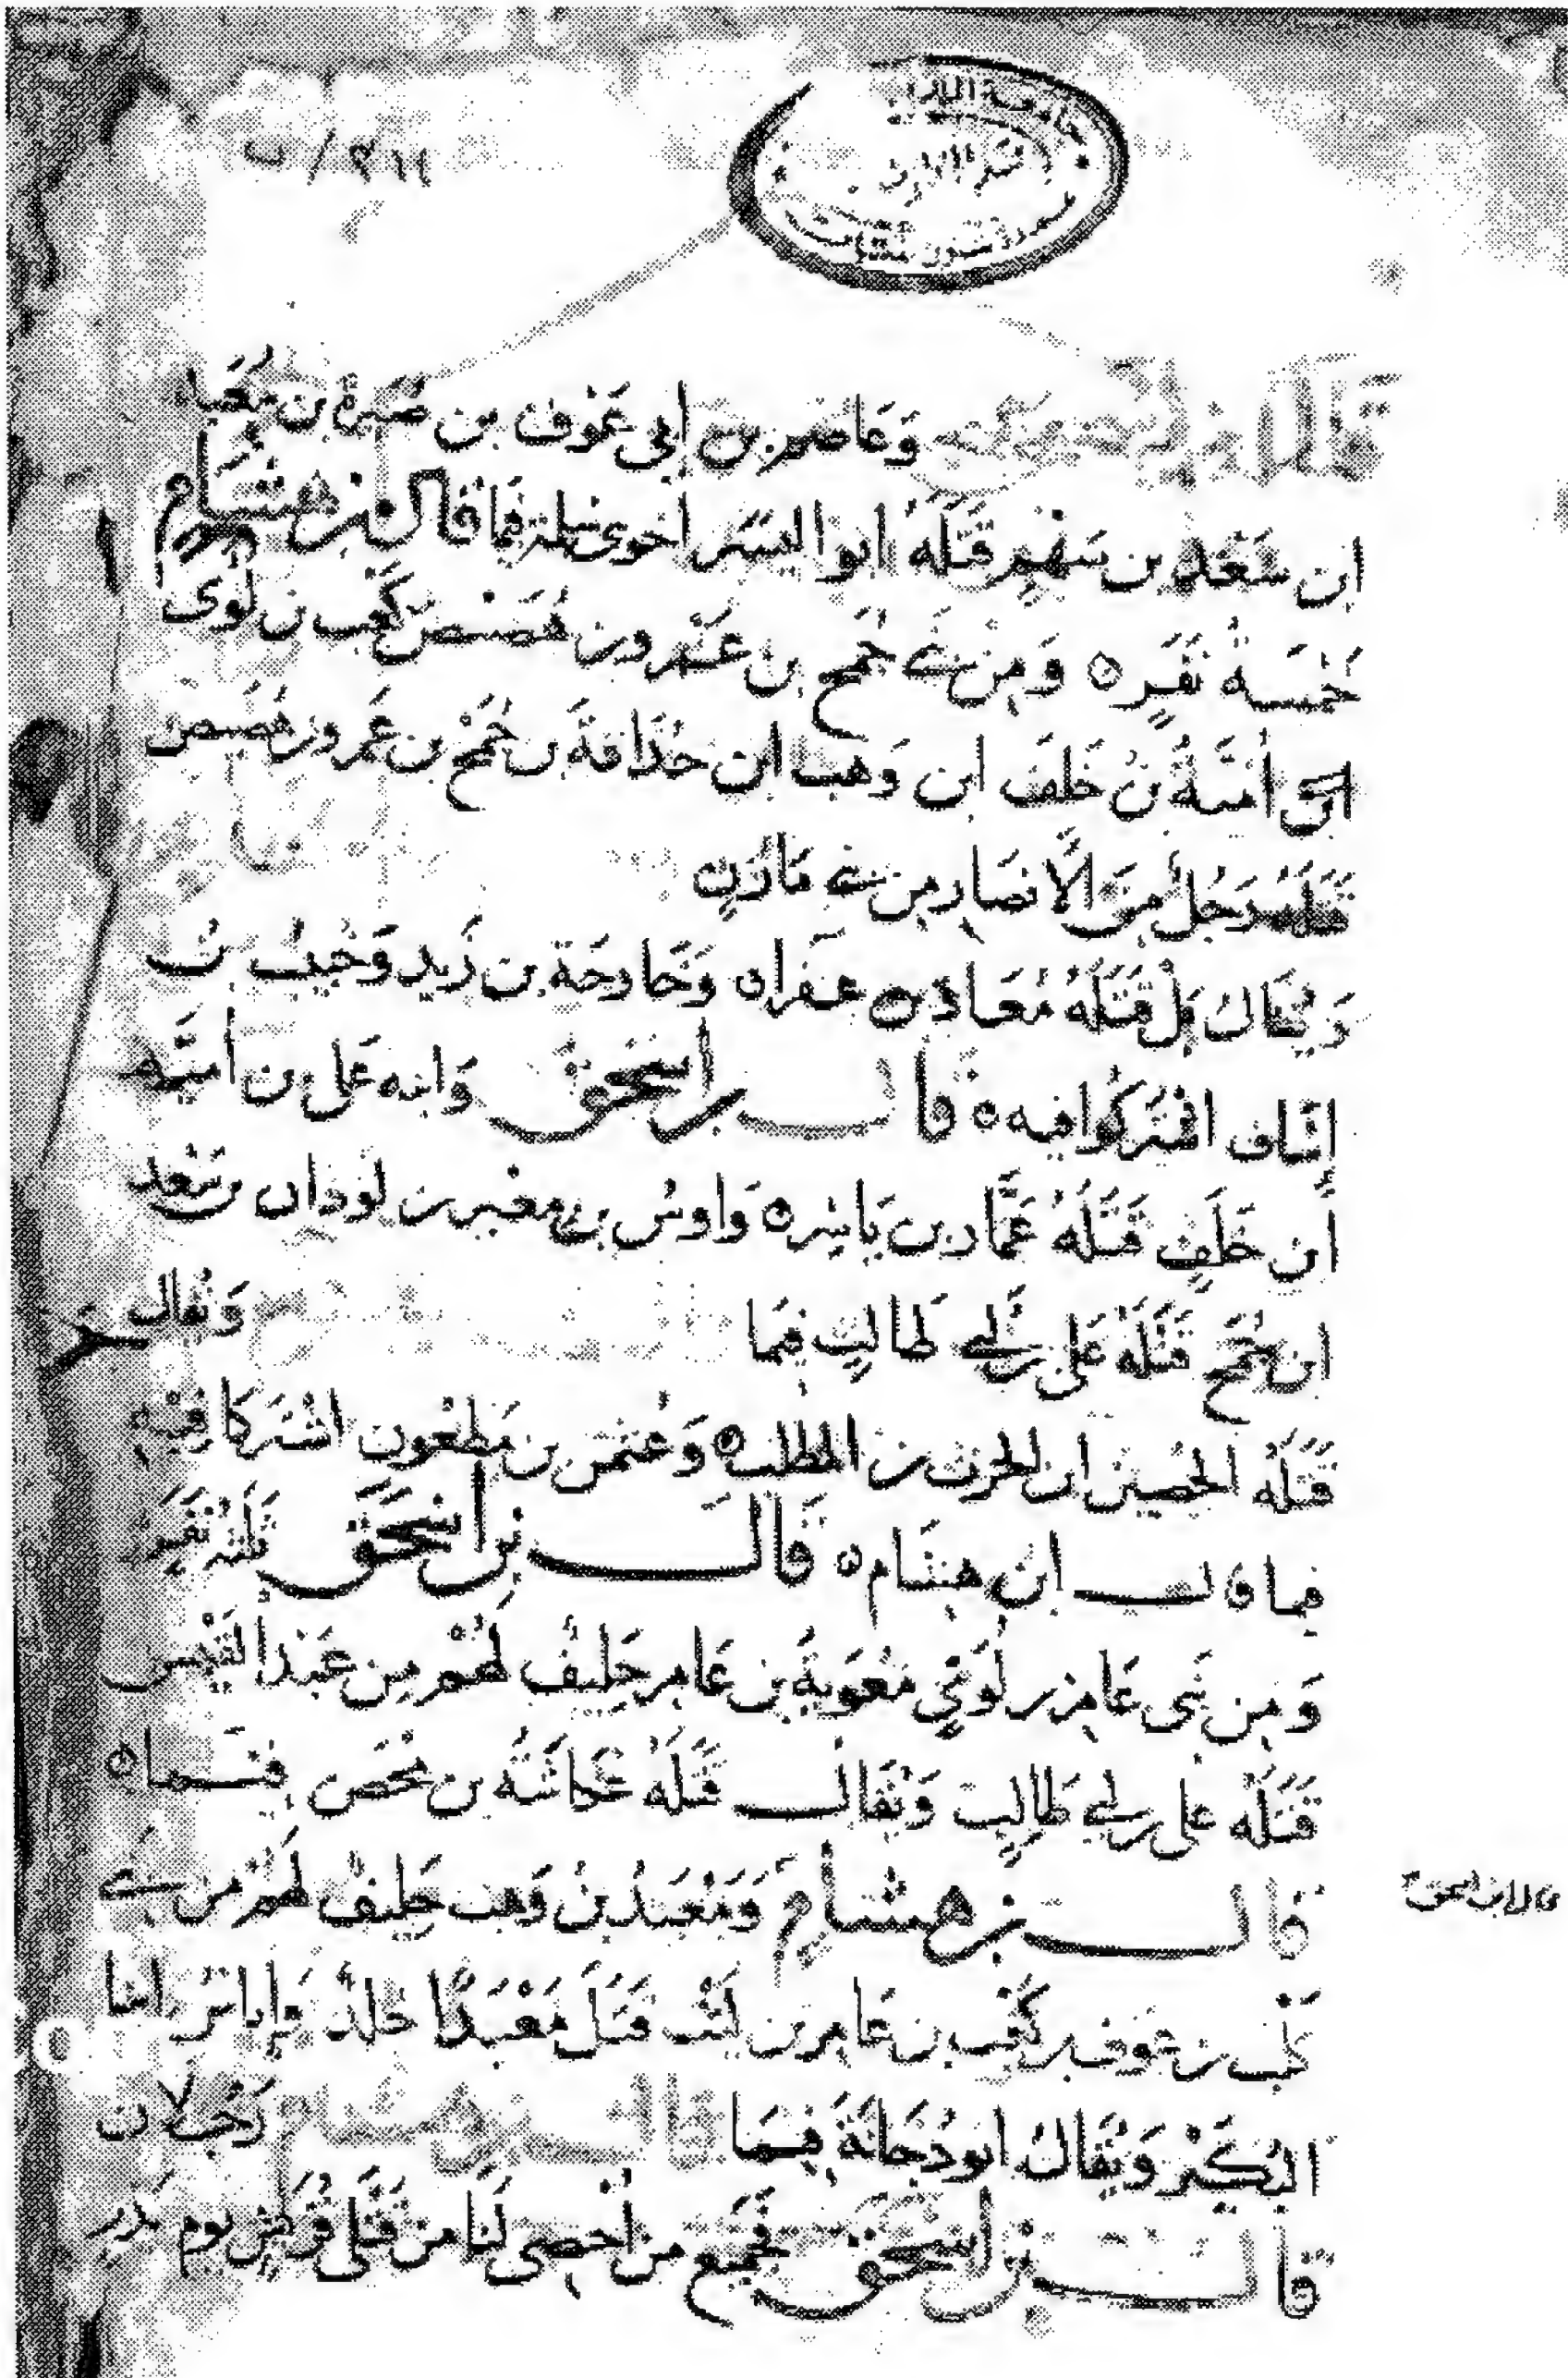 ٢١١ / ب
قال ابن اسحق وعاصم بن أبي عوف بن ضبيرة بن سعيد
ابن سعد بن سهم قتله ابو اليسر اخو بني سلمة فيما قال بن هشام
خمسة نفر ه ومن بني جمح بن عمرو بن هصيص بن كعب بن لؤي
أمية بن خلف ابن وهب ابن حذافة بن جمح بن عمرو بن هصيص
قتله رجل من الانصار من بني مازن
ويقال بل قتله معاذ بن عفراء وخارجة بن زيد وخبيب بن
إساف اشتركوا فيه ه قال بن اسحق وابنه علي بن أمية
ابن خلف قتله عمار بن ياسر ه واوس بن مغير بن لوذان بن سعد
ابن جمح قتله علي بن ابي طالب فيما ويقال
قتله الحصين ابن الحرث بن المطلب ه وعثمن بن مظعون اشتركا فيه
فيما قال ابن هشام ه قال بن اسحق ثلثة نفر ه
ومن بني عامر بن لؤي معوية بن عامر حليف لهم من عبد القيس
قتله علي بن ابي طالب ويقال قتله عكاشة بن محصن فيما ه
قال بن هشام ومعبد بن وهب حليف لهم من بني
قال ابن اسحق
كلب بن عوف بن كعب بن عامر بن ليث قتل معبدا خلد واياس ابنا
البكير ويقال ابو دجانة فيما قال بن هشام رجلان
قال بن اسحق فجميع من أحصي لنا من قتلى قريش يوم بدر